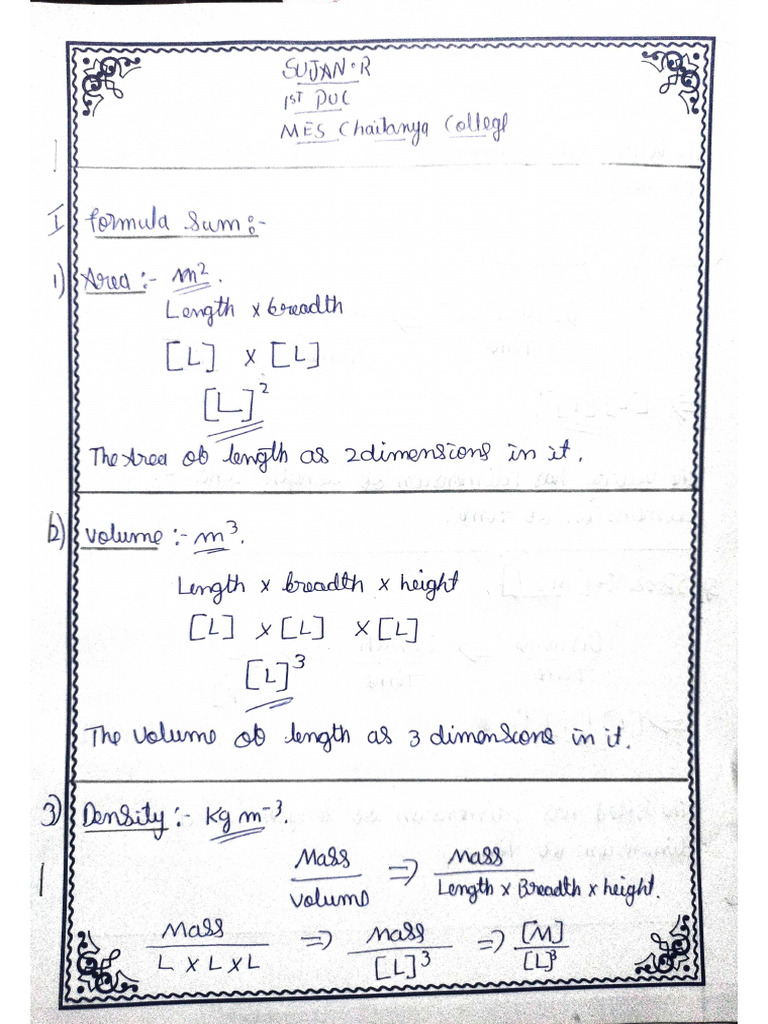 SUJAN.R
1ST PUC
MES Chaitanya College
I formula Sum:-
1) Area :- m².
Length x breadth
[L] x [L]
[L]²
The Area ob length as 2 dimensions in it.
2) volume :- m³.
Length x breadth x height
[L] x [L] x [L]
[L]³
The volume ob length as 3 dimensions in it.
3) Density :- Kg m⁻³.
Mass / volume => Mass / Length x Breadth x height.
Mass / L x L x L => Mass / [L]³ => [M] / [L]³